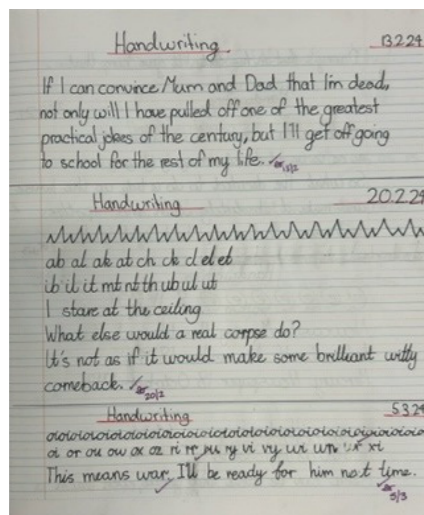 Handwriting 13.2.24
If I can convince Mum and Dad that I'm dead,
not only will I have pulled off one of the greatest
practical jokes of the century, but I'll get off going
to school for the rest of my life. 13/2
Handwriting 20.2.24
ab al ak at ch ck cl el et
ib il it mt nt th ub ul ut
I stare at the ceiling
What else would a real corpse do?
It's not as if it would make some brilliant witty
comeback. 20/2
Handwriting 5.3.24
oioioioioioioioioioioioioioioioioioioioioioioioioioio
oi or ou ow ox oz ri rr ru ry vi vy wi wn xi
This means war. I'll be ready for him next time.
5/3